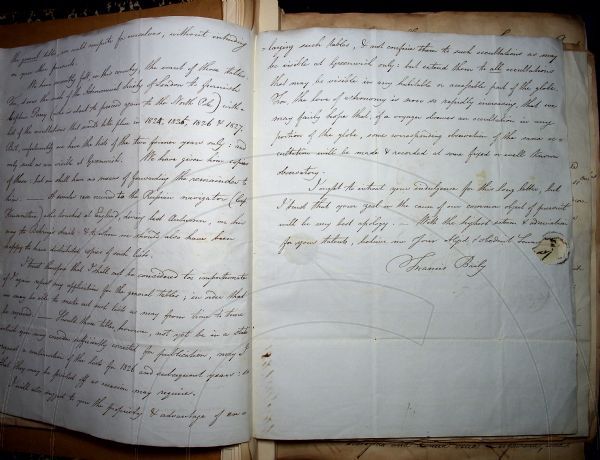 the general tables, we could compute for ourselves, without intruding
on your other pursuits.
We have recently felt, in this country, the want of those tables.
For it was the wish of the Astronomical Society of London to furnish
Captain Parry (who is about to proceed again to the North Pole) with a
list of the occultations that would take place in 1824, 1825, 1826 & 1827.
But, unfortunately we have the lists of the two former years only: and
only such as are visible at Greenwich. We have given him copies
of these: but we shall have no means of forwarding the remainder to
him. — A similar case occurred to the Russian navigator (Capt
), who touched at England, during last Autumn, on his
way to Behring's straits: & to whom we should also have been
happy to have distributed copies of such lists.
I trust therefore that I shall not be considered too importunate
if I again repeat my application for the general tables; in order that
we may be able to make out such lists as may from time to time
be required. — Should those tables, however, not yet be in a state
which you may consider sufficiently corrected for publication, may I
request a continuation of the lists for 1826 and subsequent years: so
that they may be printed off as occasion may require.
I will also suggest to you the propriety & advantage of en-
-larging such tables, & not confine them to such occultations as may
be visible at Greenwich only: but extend them to all occultations
that may be visible in any habitable or accessible part of the globe.
For, the love of astronomy is now so rapidly increasing, that we
may fairly hope that, if a voyager observes an occultation in any
portion of the globe, some corresponding observation of the same oc-
cultation will be made & recorded at some fixed or well known
observatory.
I ought to intreat your indulgence for this long letter, but
I trust that your zeal in the cause of our common object of pursuit
will be my best apology. — With the highest esteem & admiration
for your talents, believe me Your Obed.t
Francis Baily